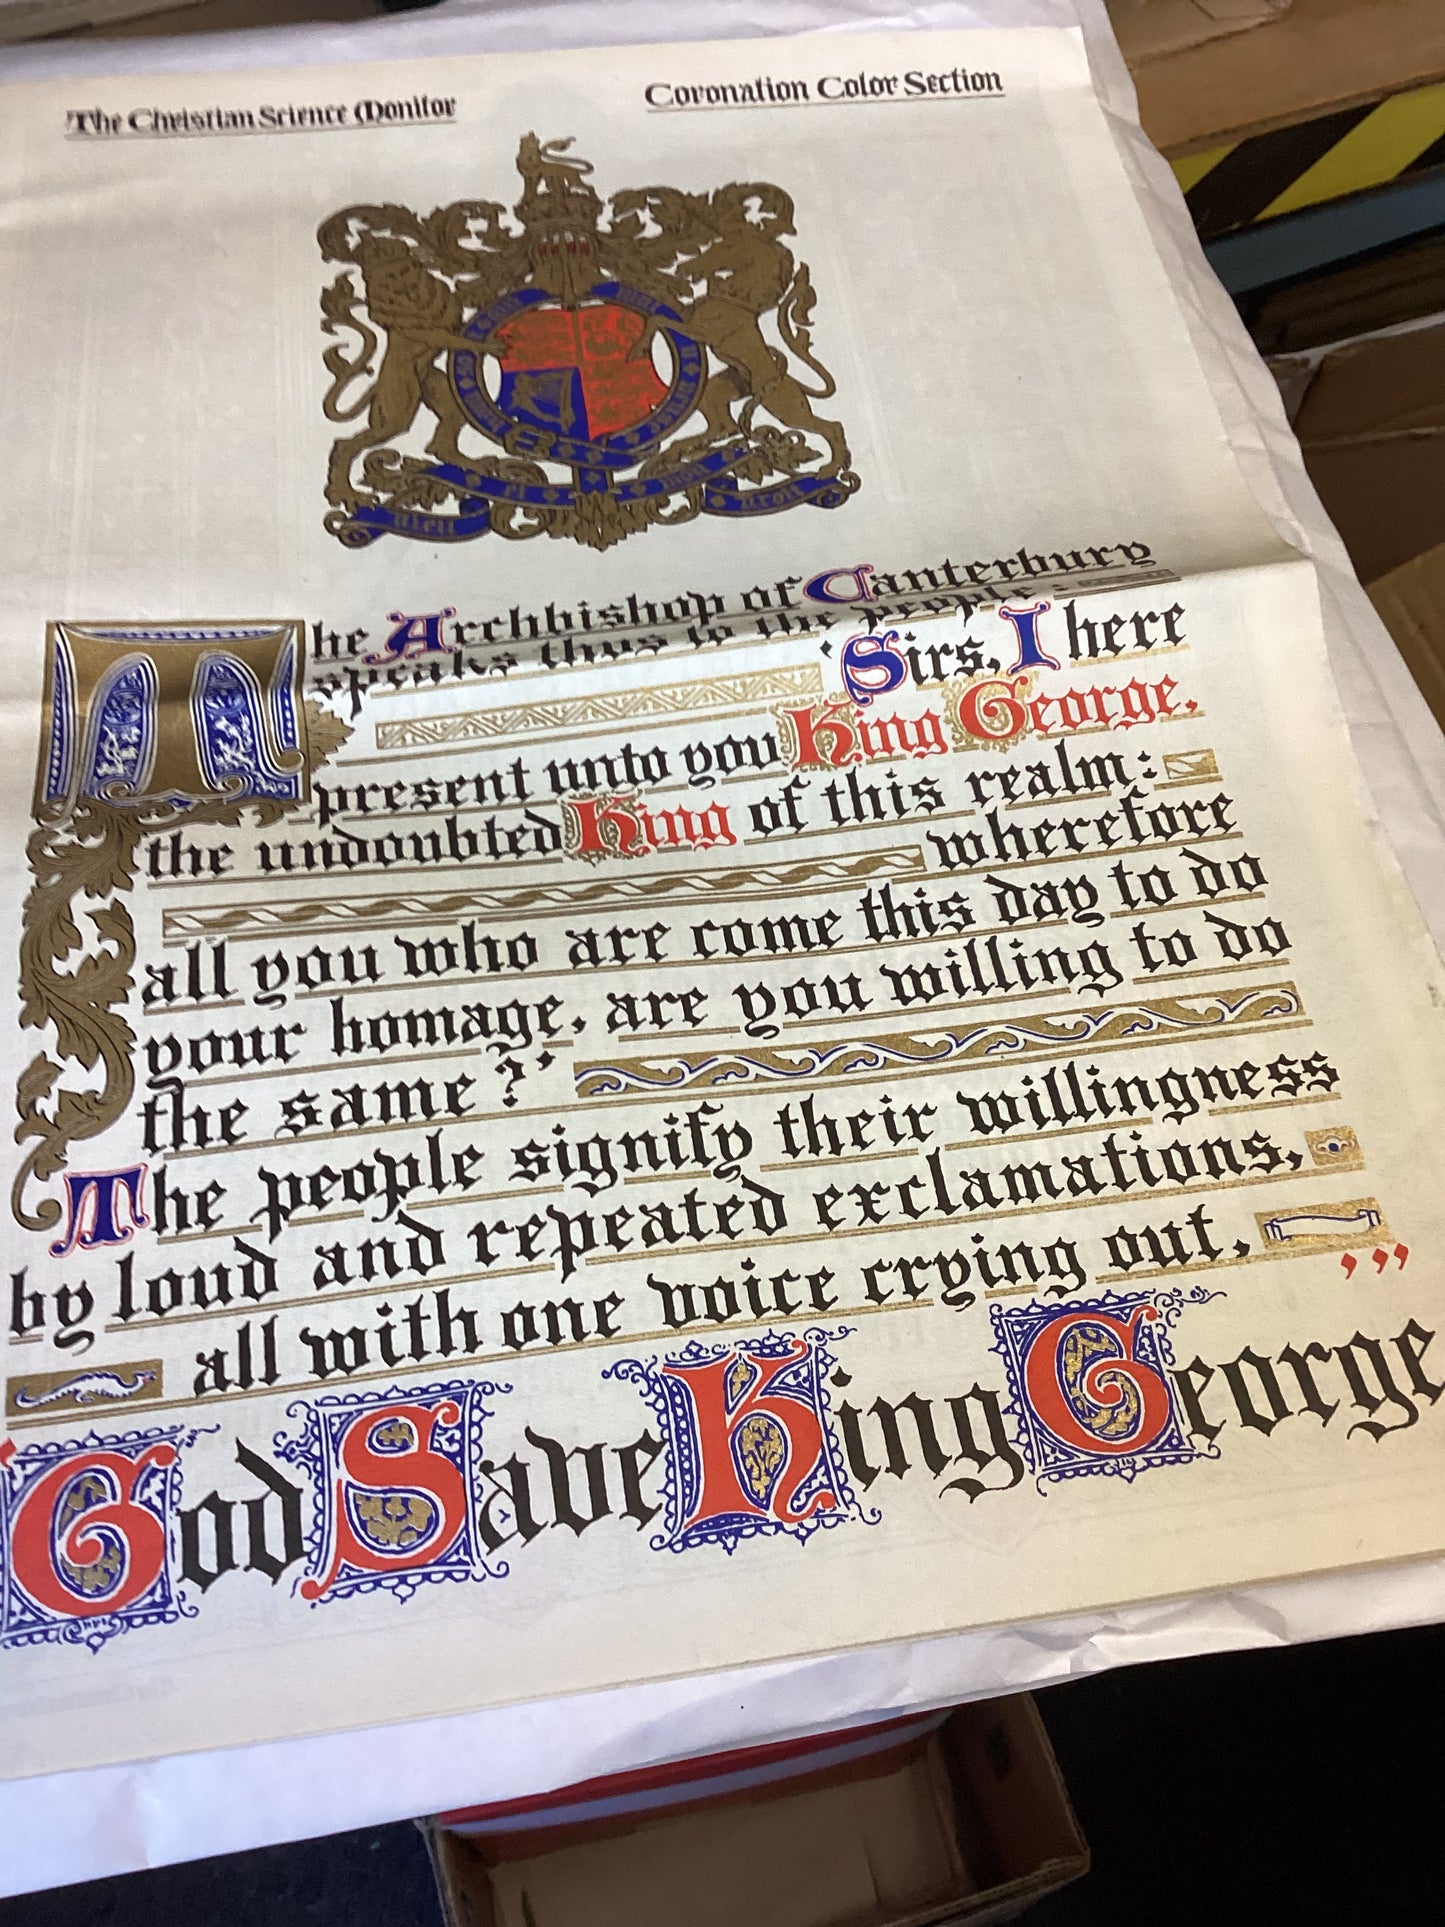 The Christian Science Monitor
Coronation Color Section
Dieu et mon droit
The Archbishop of Canterbury
speaks thus to the people:
‘Sirs, I here
present unto you King George,
the undoubted King of this realm:
wherefore
all you who are come this day to do
your homage, are you willing to do
the same?’
The people signify their willingness
by loud and repeated exclamations,
all with one voice crying out,
God Save King George